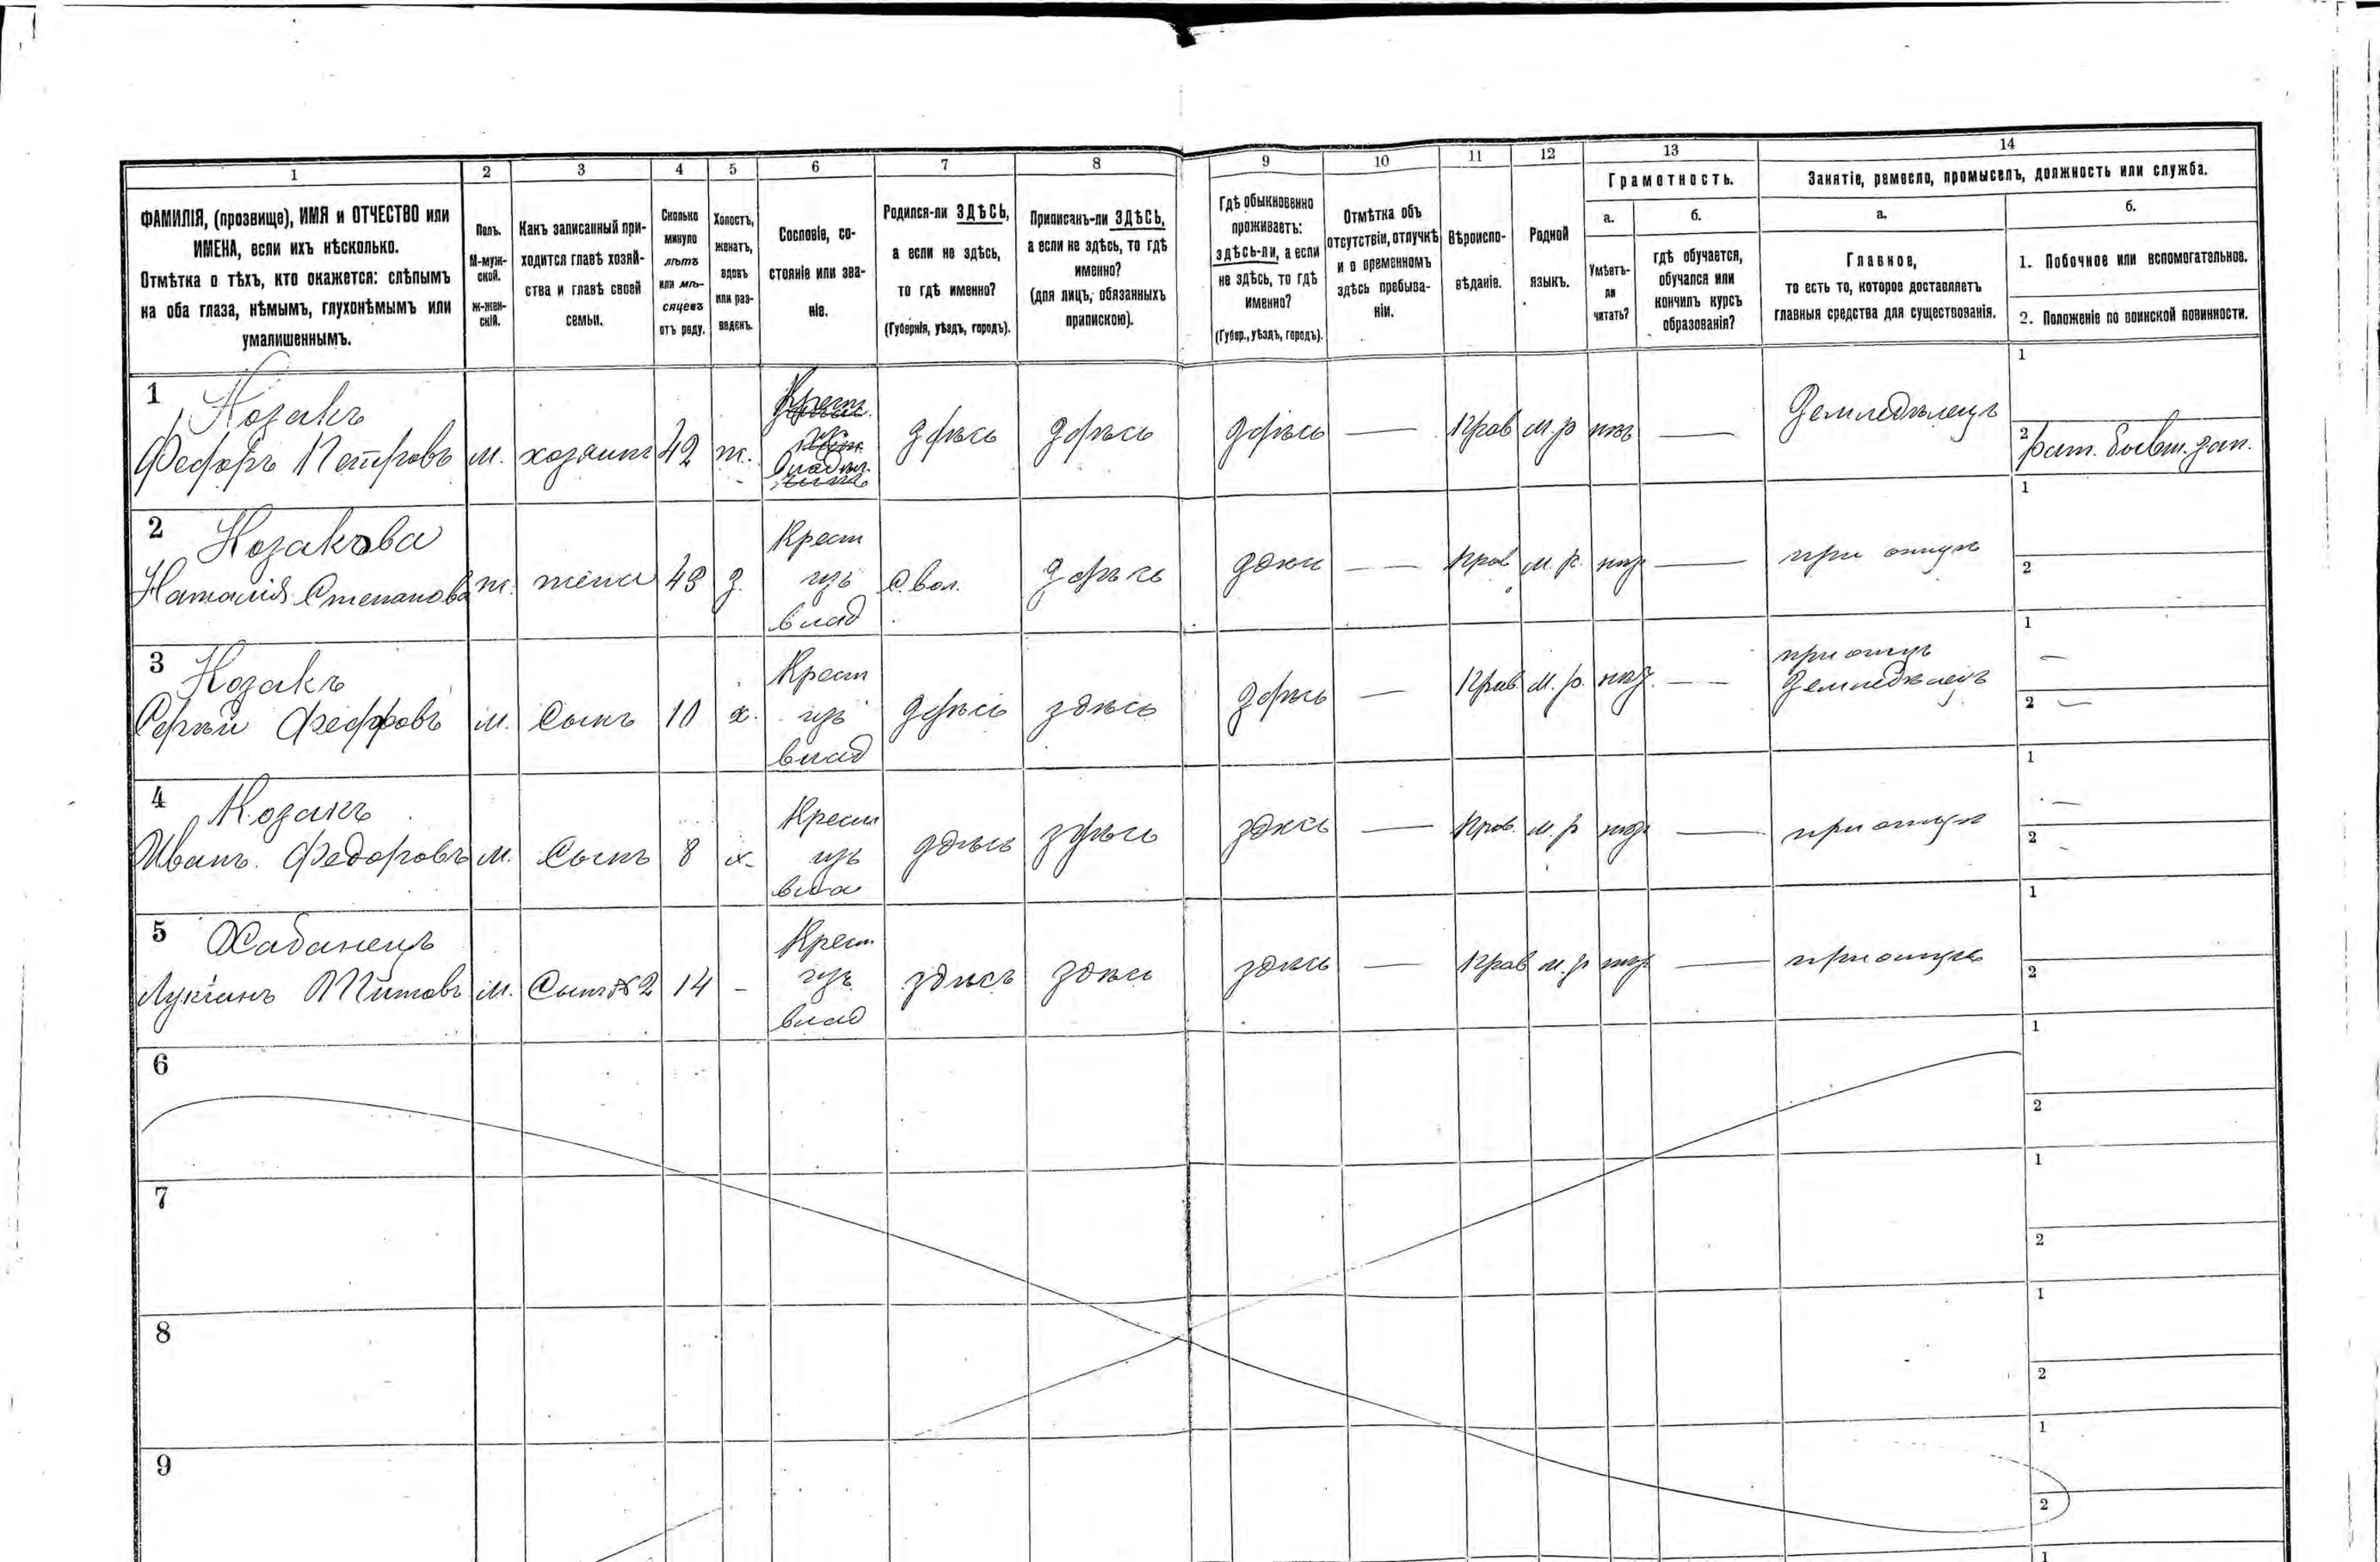 1 2 3 4 5 6 7 8 9 10 11 12 13 14
ФАМИЛІЯ, (прозвище), ИМЯ и ОТЧЕСТВО или
ИМЕНА, если ихъ нѣсколько.
Отмѣтка о тѣхъ, кто окажется: слѣпымъ
на оба глаза, нѣмымъ, глухонѣмымъ или
умалишеннымъ.
Полъ.
М-муж-
ской.
Ж-жен-
скій.
Какъ записанный при-
ходится главѣ хозяй-
ства и главѣ своей
семьи.
Сколько
минуло
лѣтъ
или мѣ-
сяцевъ
отъ роду.
Холостъ,
женатъ,
вдовъ
или раз-
веденъ.
Сословіе, со-
стояніе или зва-
ніе.
Родился-ли ЗДѢСЬ,
а если не здѣсь,
то гдѣ именно?
(Губернія, уѣздъ, городъ).
Приписанъ-ли ЗДѢСЬ,
а если не здѣсь, то гдѣ
именно?
(для лицъ, обязанныхъ
припискою).
Гдѣ обыкновенно
проживаетъ:
здѣсь-ли, а если
не здѣсь, то гдѣ
именно?
(Губер., уѣздъ, городъ).
Отмѣтка объ
отсутствіи, отлучкѣ
и о временномъ
здѣсь пребыва-
ніи.
Вѣроиспо-
вѣданіе.
Родной
языкъ.
Грамотность.
а.
Умѣетъ-
ли
читать?
б.
гдѣ обучается,
обучался или
кончилъ курсъ
образованія?
Занятіе, ремесло, промыселъ, должность или служба.
а.
Главное,
то есть то, которое доставляетъ
главныя средства для существованія.
б.
1. Побочное или вспомогательное.
2. Положеніе по воинской повинности.
1 Козакъ
Федоръ Петровъ м. хозяинъ 42 ж. здѣсь здѣсь здѣсь — Прав м.р нѣтъ — Земледѣлецъ
1
2
2 Козакова
Наталія Степанова ж. жена 43 з.
Крест
изъ
влад
С. вол. здѣсь здѣсь — Прав м.р. — при отцѣ
1
2
3 Козакъ
Сергѣй Федоровъ м. Сынъ 10 х.
Крест
изъ
влад
здѣсь здѣсь здѣсь — Прав. м.р. — при отцѣ
Земледѣлецъ
1 —
2 —
4 Козакъ
Иванъ Федоровъ м. Сынъ 8 х.
Крест
изъ
вла
здѣсь здѣсь здѣсь — Прав. м.р — при отцѣ
1 —
2 -
5 Хабанецъ
Лукіанъ Титовъ м. Сынъ № 2 14 -
Крест
изъ
влад
здѣсь здѣсь здѣсь — Прав м.р — при отцѣ
1
2
6
1
2
7
1
2
8
1
2
9
1
2
1